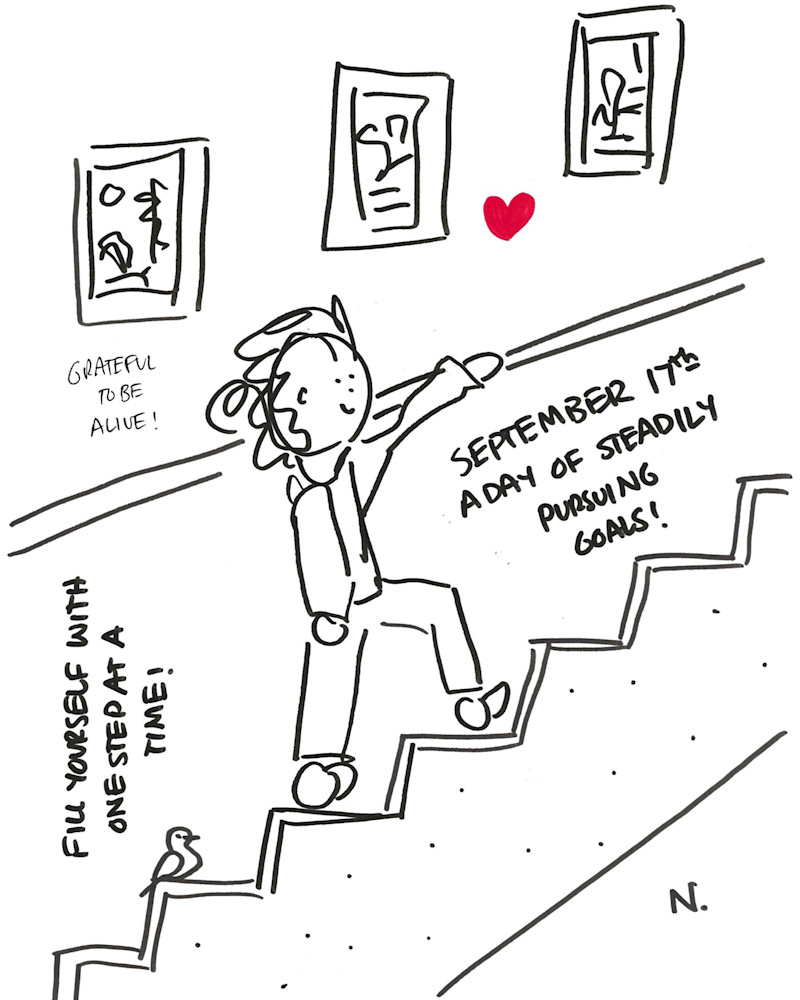 GRATEFUL
TO BE
ALIVE!
SEPTEMBER 17th
A DAY OF STEADILY
PURSUING
GOALS!
FILL YOURSELF WITH
ONE STEP AT A
TIME!
N.